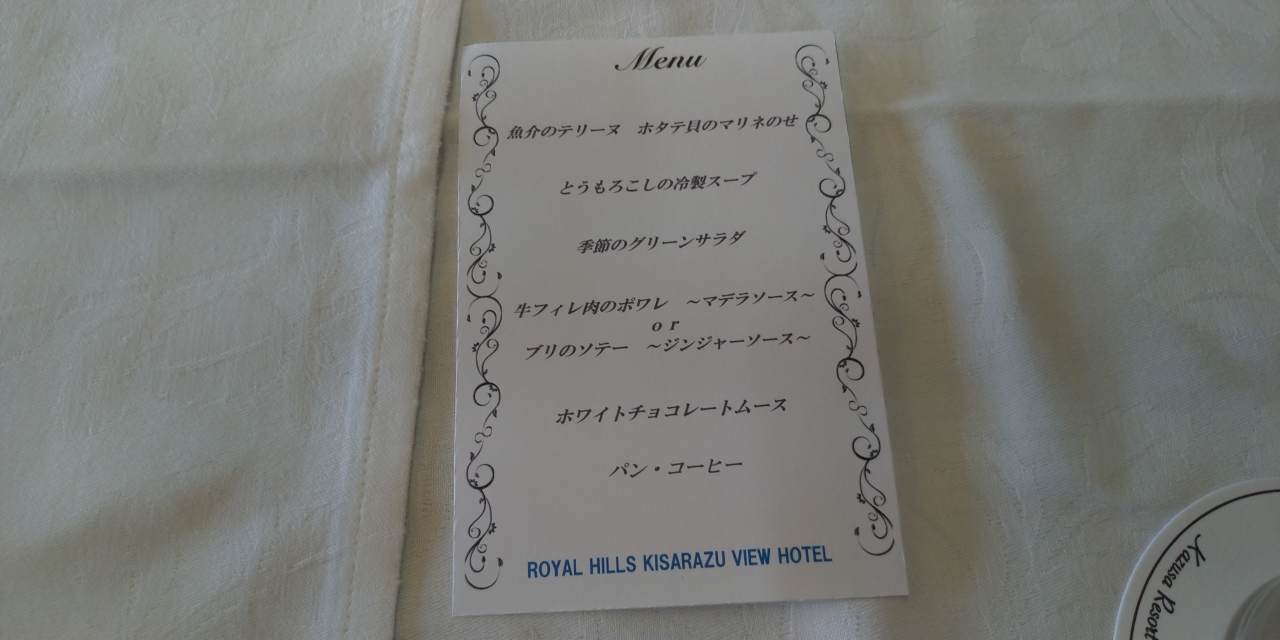 Menu
魚介のテリーヌ　ホタテ貝のマリネのせ
とうもろこしの冷製スープ
季節のグリーンサラダ
牛フィレ肉のポワレ　～マデラソース～
or
ブリのソテー　～ジンジャーソース～
ホワイトチョコレートムース
パン・コーヒー
ROYAL HILLS KISARAZU VIEW HOTEL
Kazusa Resort